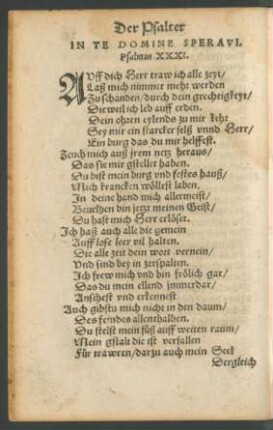 Der Psalter
IN TE DOMINE SPERAVI.
Psalmus XXXI.
AUff dich Herr traw ich alle zeyt/
Laß mich nimmer mehr werden
Zu schanden/durch dein grechtigkeyt/
Dieweil ich leb auff erden.
Dein ohren eylends zu mir kehr
Sey mir ein starcker felß vnnd Herr/
Ein burg das du mir helffest.
Zeuch mich auß jrem netz heraus/
Das sie mir gstellet haben.
Du bist mein burg vnd festes hauß/
Mich krancken wöllest laben.
In deine hand mich allermeist/
Beuelhen bin jetz meinen Geist/
Du hast mich Herr erlöser.
Ich haß auch alle die gemein
Auff lose leer vil halten.
Die alle zeit dein wort vernein/
Vnd sind bey in zerspalten.
Ich frew mich vnd bin frölich gar/
Das du mein ellend jmmerdar/
Ansihest vnd erkennest
Auch gibstu mich nicht in den daum/
Des feindes allenthalben.
Du stelst mein füß auff weiten raum/
Mein gstalt die ist verfallen
Für trawren/darzu auch mein Seel
Dergleich